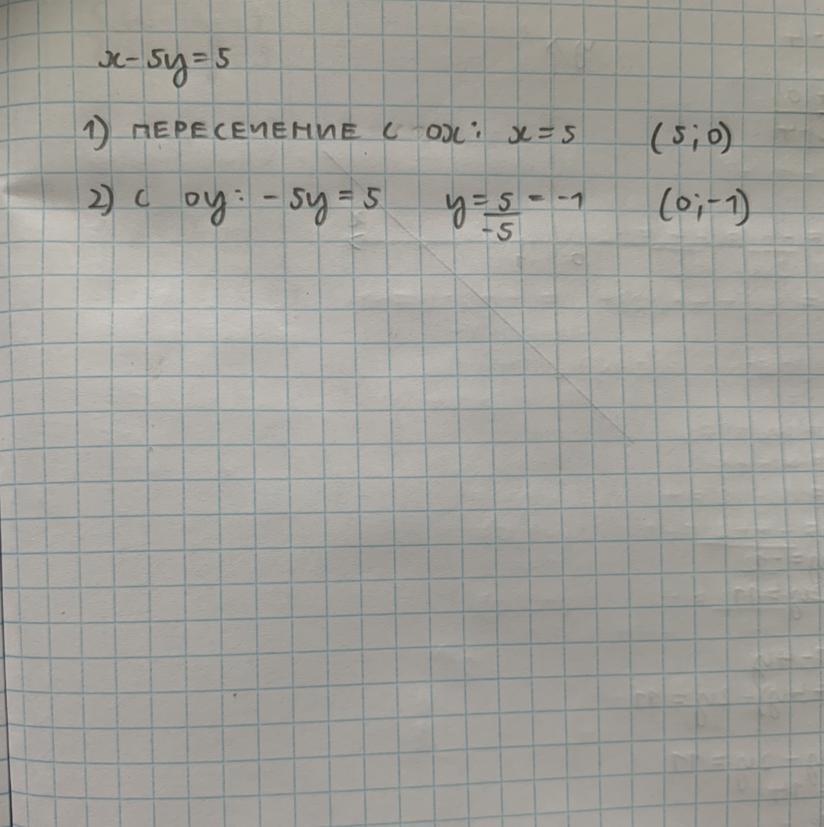 x-5y=5
1) ПЕРЕСЕЧЕНИЕ С OX: x=5 (5;0)
2) С OY: -5y=5 y=5/-5=-1 (0;-1)